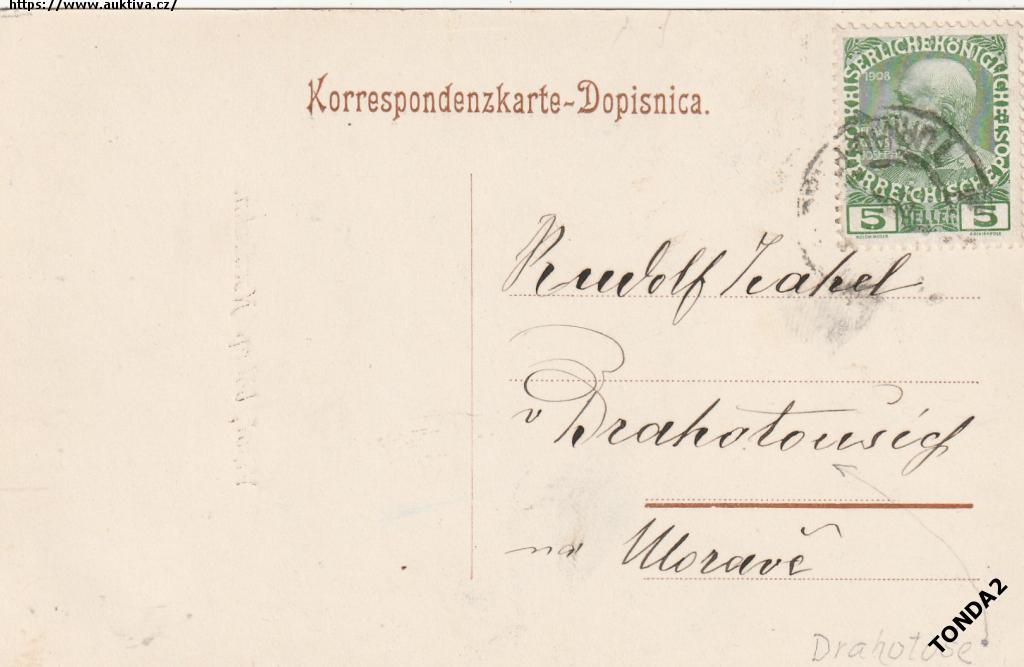 https://www.auktiva.cz/
Korrespondenzkarte-Dopisnica.
KAISERLICHE KÖNIGLICHE ÖSTERREICHISCHE POST
1908
5 HELLER 5
Rudolf Zahel
v Drahotouších
na Moravě
Drahotouše
TONDA2